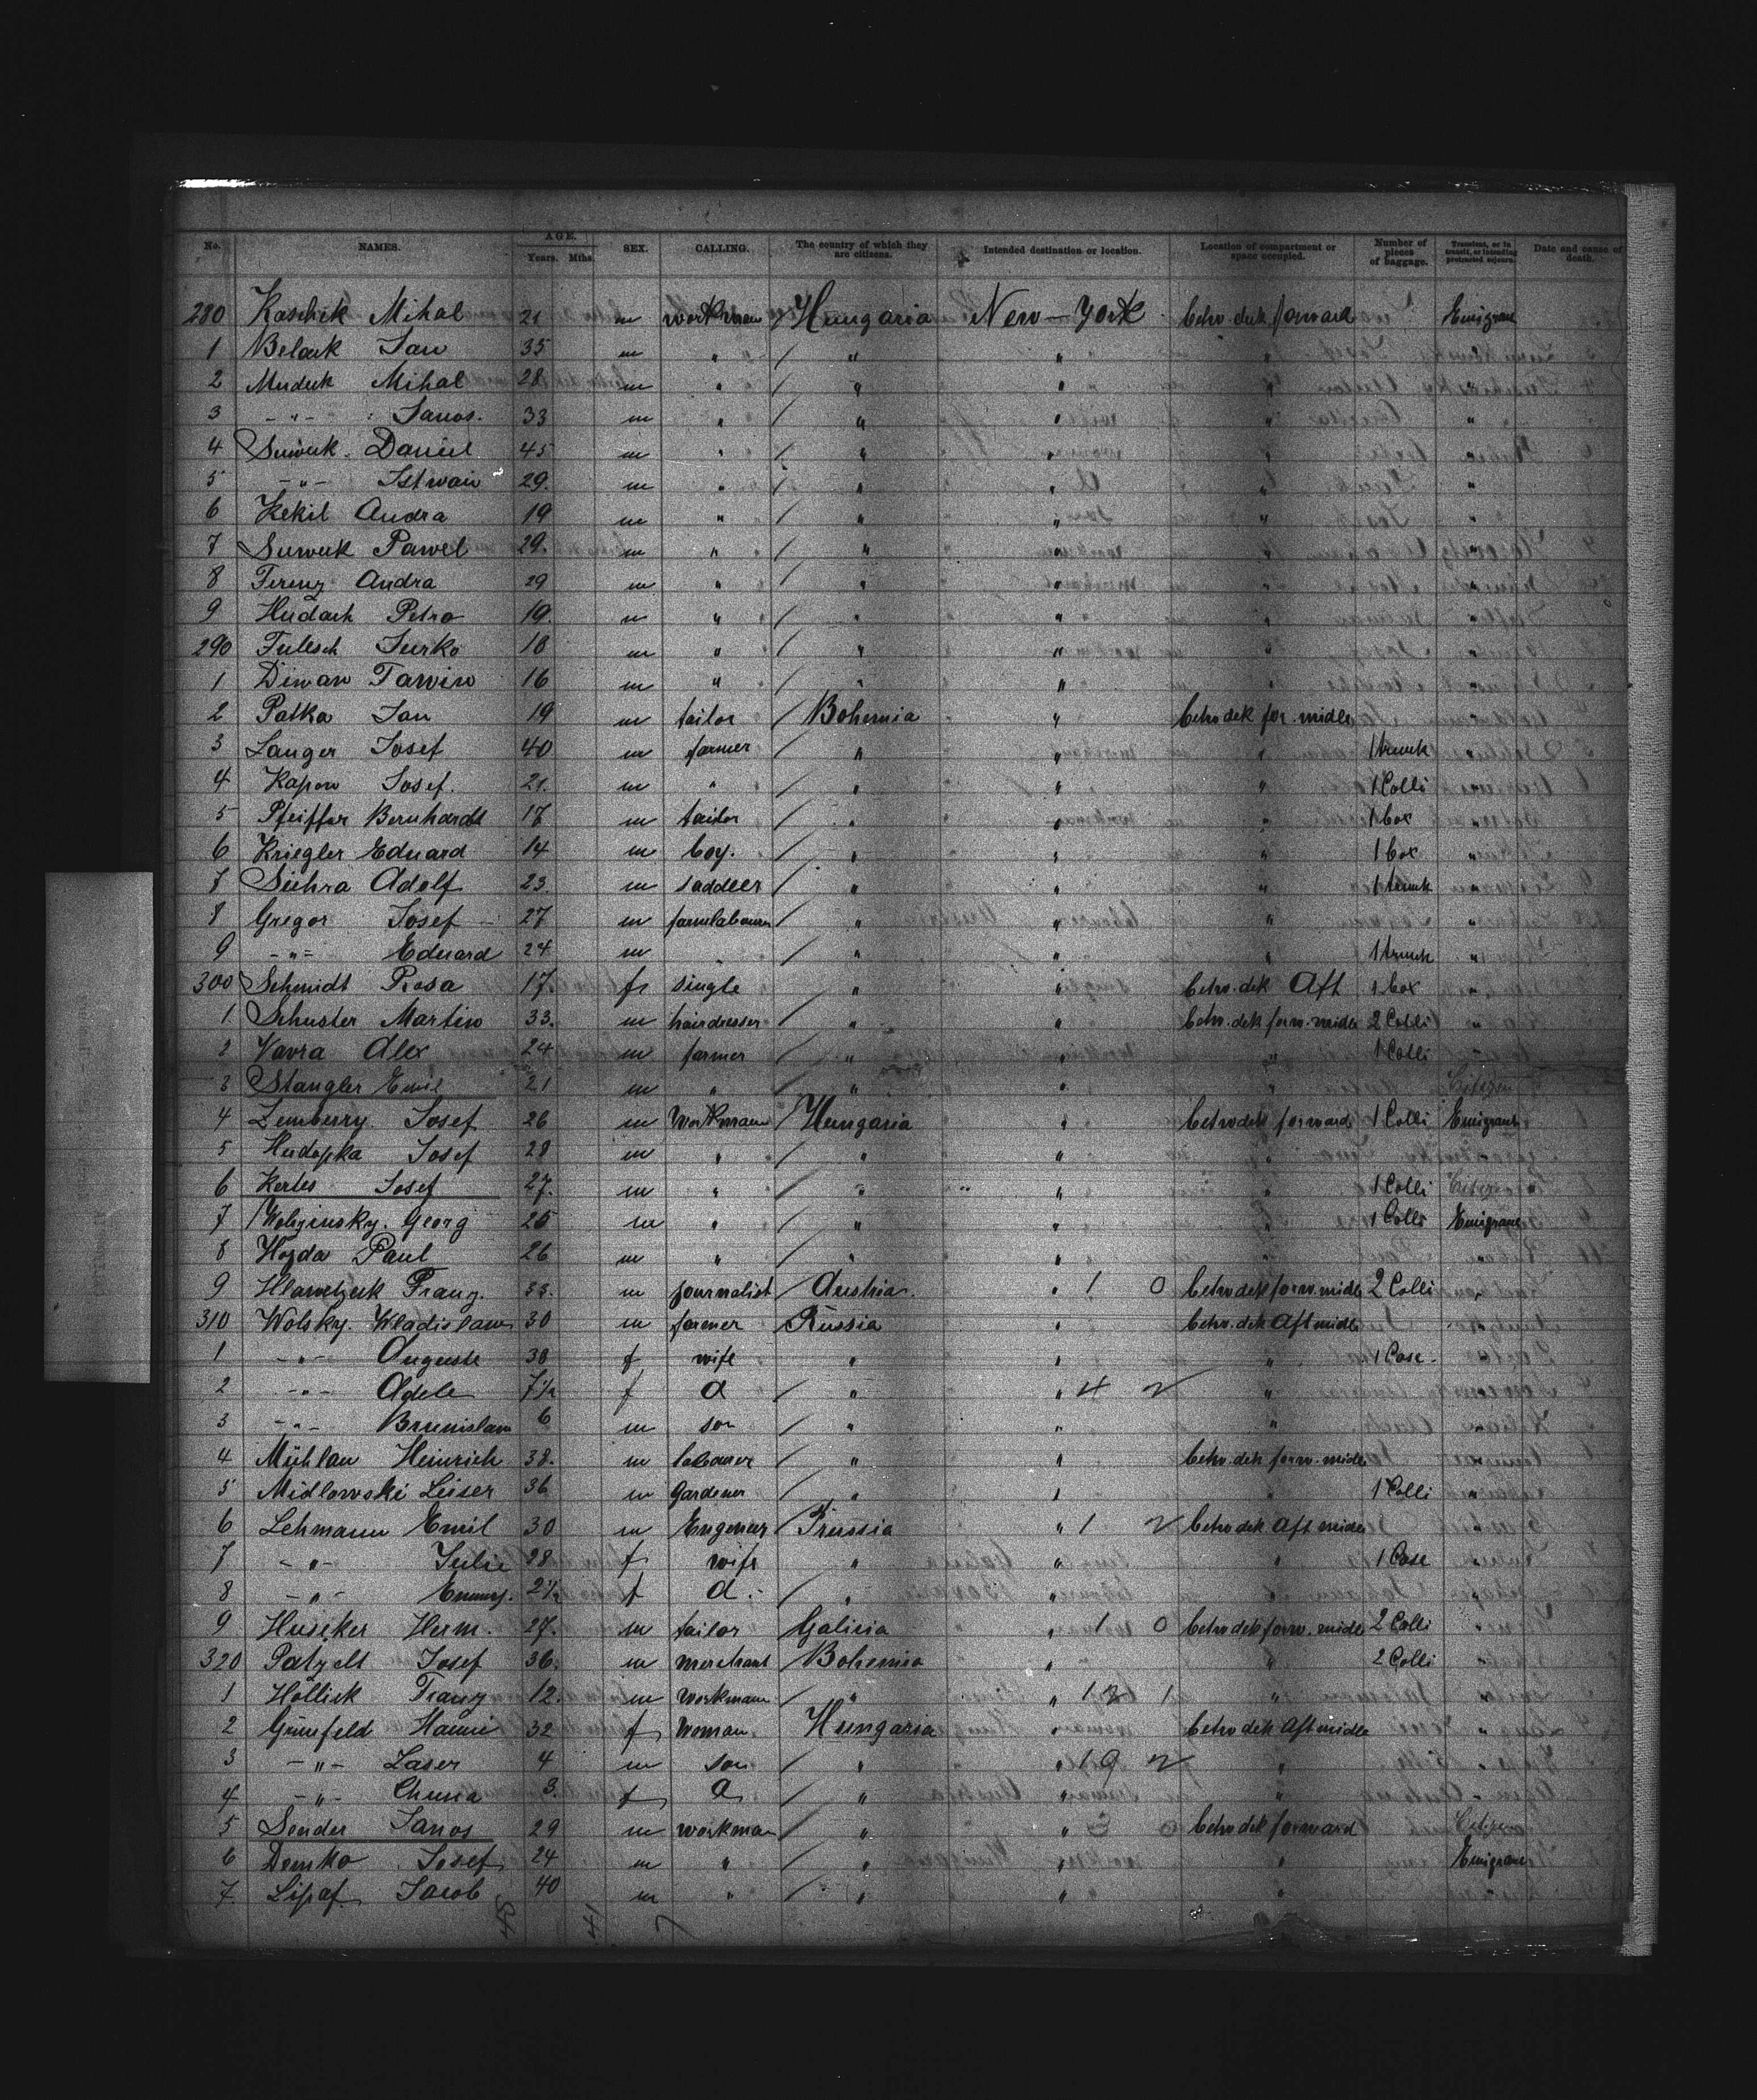 No. NAMES. AGE. Years. Mths. SEX. CALLING. The country of which they are citizens. Intended destination or location. Location of compartment or space occupied. Number of pieces of baggage. Transient, or in transit, or intending protracted sojourn. Date and cause of death.
280 Kaschik Mihal 21 m workman / Hungaria New-York betw. dek forward Emigrant
1 Jan 35 m " / " " " "
2 Muduk Mihal 28 m " / " " " "
3 -"- Janos. 33 m " / " " " "
4 Daniel 45 m " / " " " "
5 -"- Istwan 29. m " / " " " "
6 Kekil Andra 19 m " / " " " "
7 Pawel 29. m " / " " " "
8 Ferenz Andra 29 m " / " " " "
9 Hudach Petro 19. m " / " " " "
290 Fulesch Jurko 18 m " / " " " "
1 Diwan 16 m " / " " "
2 Patka Jan 19 m tailor / Bohemia " betw dek for. midle
3 Langer Josef 40 m farmer / " " " 1 trunk "
4 Kapow Josef. 21. m " / " " " 1 Colli "
5 Pfeiffer Bernhardt 17 m tailor / " " " 1 box "
6 Kriegler Eduard 14 m boy. / " " " 1 box "
7 Adolf 23. m saddler / " " " 1 trunk "
8 Gregor Josef 27 m farmlabourer / " " " "
9 -"- Eduard 24 m " / " " " 1 trunk "
300 Schmidt Rosa 17. f single " " betw. dek Aft 1 box "
1 Schuster Martin 33. m hairdresser / " " betw. dek forw. midle 2 Colli "
2 Vavra Alex 24 m farmer / " " " 1 Colli
3 Stangler Emil 21 m " / " " " Citizen
4 Josef 26 m workman / Hungaria " betw dek forward 1 Colli Emigrant
5 Hudopka Josef 28 m " / " " "
6 Kertes Josef 27. m " / " " " 1 Colli Citizen
7 Georg 25 m " / " " " 1 Colli Emigrant
8 Hojda Paul 26 m " / " " " "
9 Franz. 33. m journalist / Austria. " 1 0 betw dek forw. midle 2 Colli "
310 Wolsky. Wladislaw 30 m farmer / Russia " betw. dek Aft midle "
1 -"- Auguste 30 f wife " " " 1 Case. "
2 -"- Adele 7½ f d / " " 4 2 "
3 -"- Brunislaw 6 m son / " " "
4 Mühlau Heinrich 38. m labourer / " " betw. dek forw. midle
5 Midlowski Leiser 36 m Gardener / " " " 1 Colli "
6 Lehmann Emil 30 m Engeneer / Prussia " 1 2 betw dek Aft midle
7 -"- Julie 28 f wife " " " 1 Case "
8 -"- Emmy. 2½ f d. / " " " "
9 Herm. 27. m tailor Galicia " 1 0 betw dek forw. midle 2 Colli "
320 Patzelt Josef 36. m merchant / Bohemia " " 2 Colli "
1 Franz 12. m workman / " " 1 "
2 Grünfeld Hanni 32 f Woman. Hungaria " betw dek Aft midle "
3 -"- Laser 4 m son / " " 19 2 " "
4 -"- 3. f d / " " " "
5 Sender Janos 29 m workman / " " 3 0 betw dek forward Citizen
6 Demko Josef 24 m " / " " " Emigrant
7 Jacob 40 m " / " " "
41